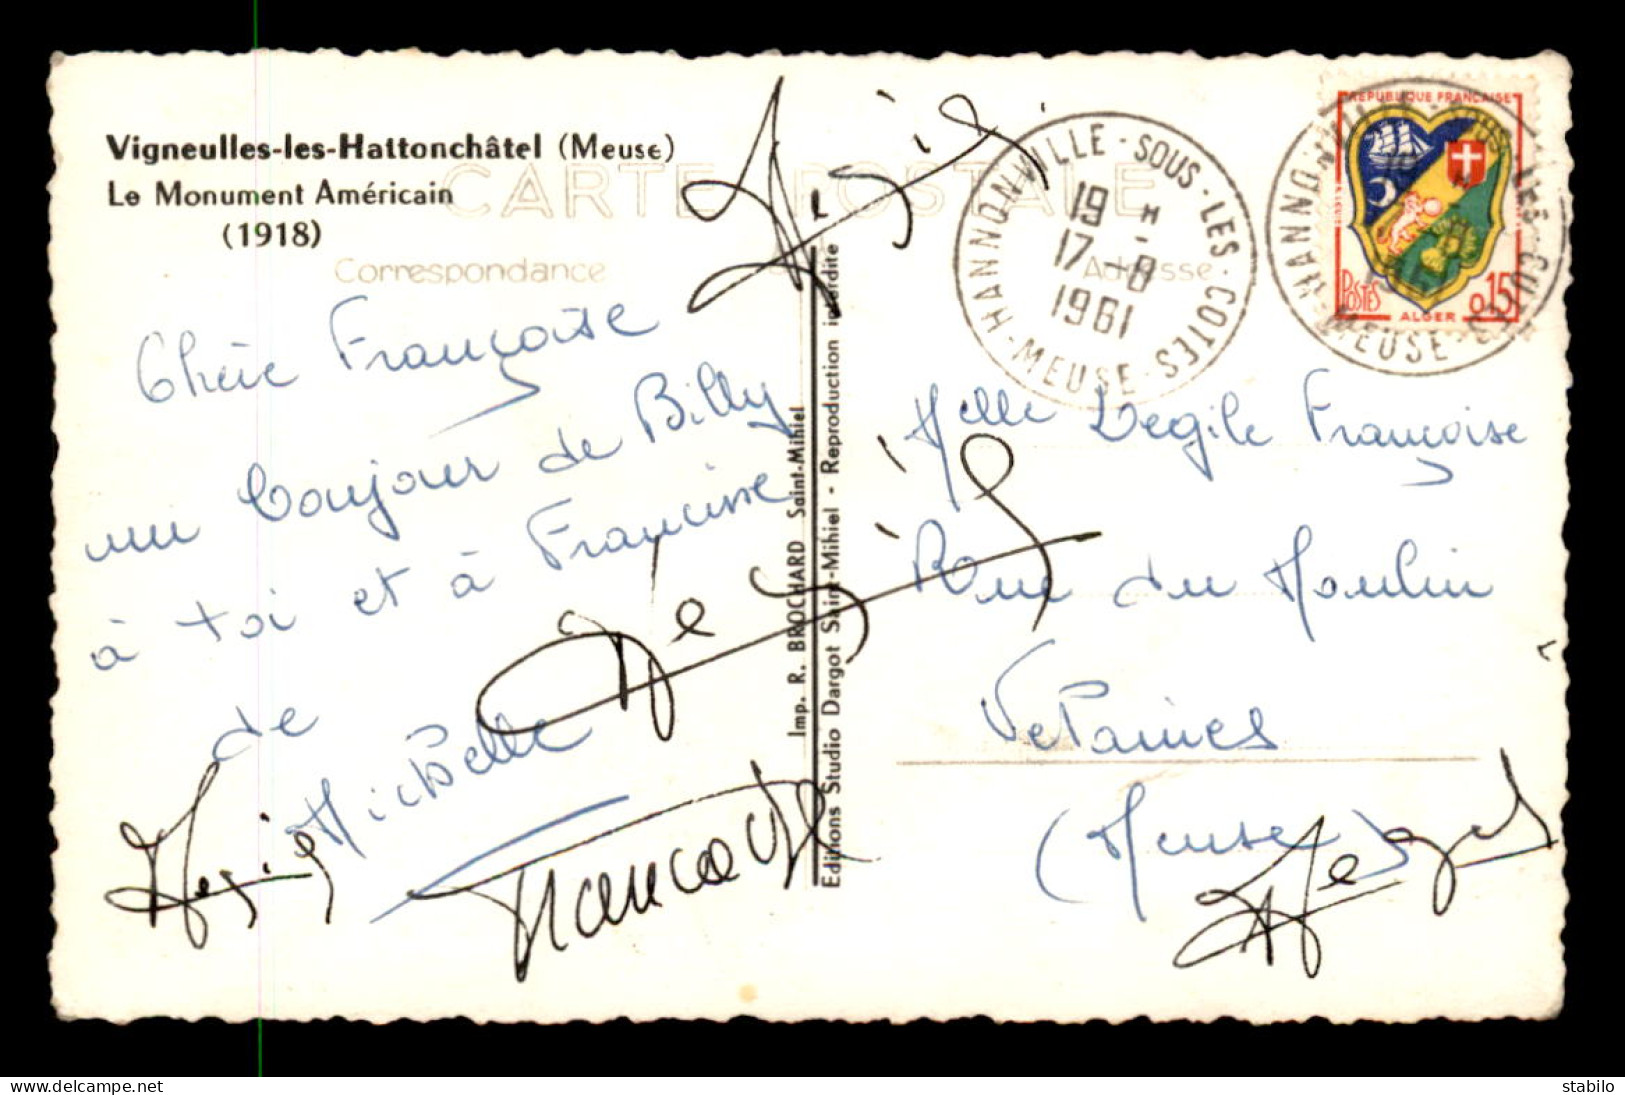 Vigneulles-les-Hattonchâtel (Meuse)
Le Monument Américain
(1918)
CARTE POSTALE
Correspondance
Adresse
Chère Françoise
un bonjour de Billy
à toi et à Francisse
de
Michelle
Imp. R. BROCHARD Saint-Mihiel
Editions Studio Dargot Saint-Mihiel - Reproduction interdite
HANNONVILLE-SOUS-LES-COTES
MEUSE
19 H
17-8
1961
REPUBLIQUE FRANÇAISE
POSTES
ALGER
0,15
HANNONVILLE-SOUS-LES-COTES
MEUSE
Melle Degile Françoise
Rue du Moulin
(Meuse)
delcampe.net
stabilo